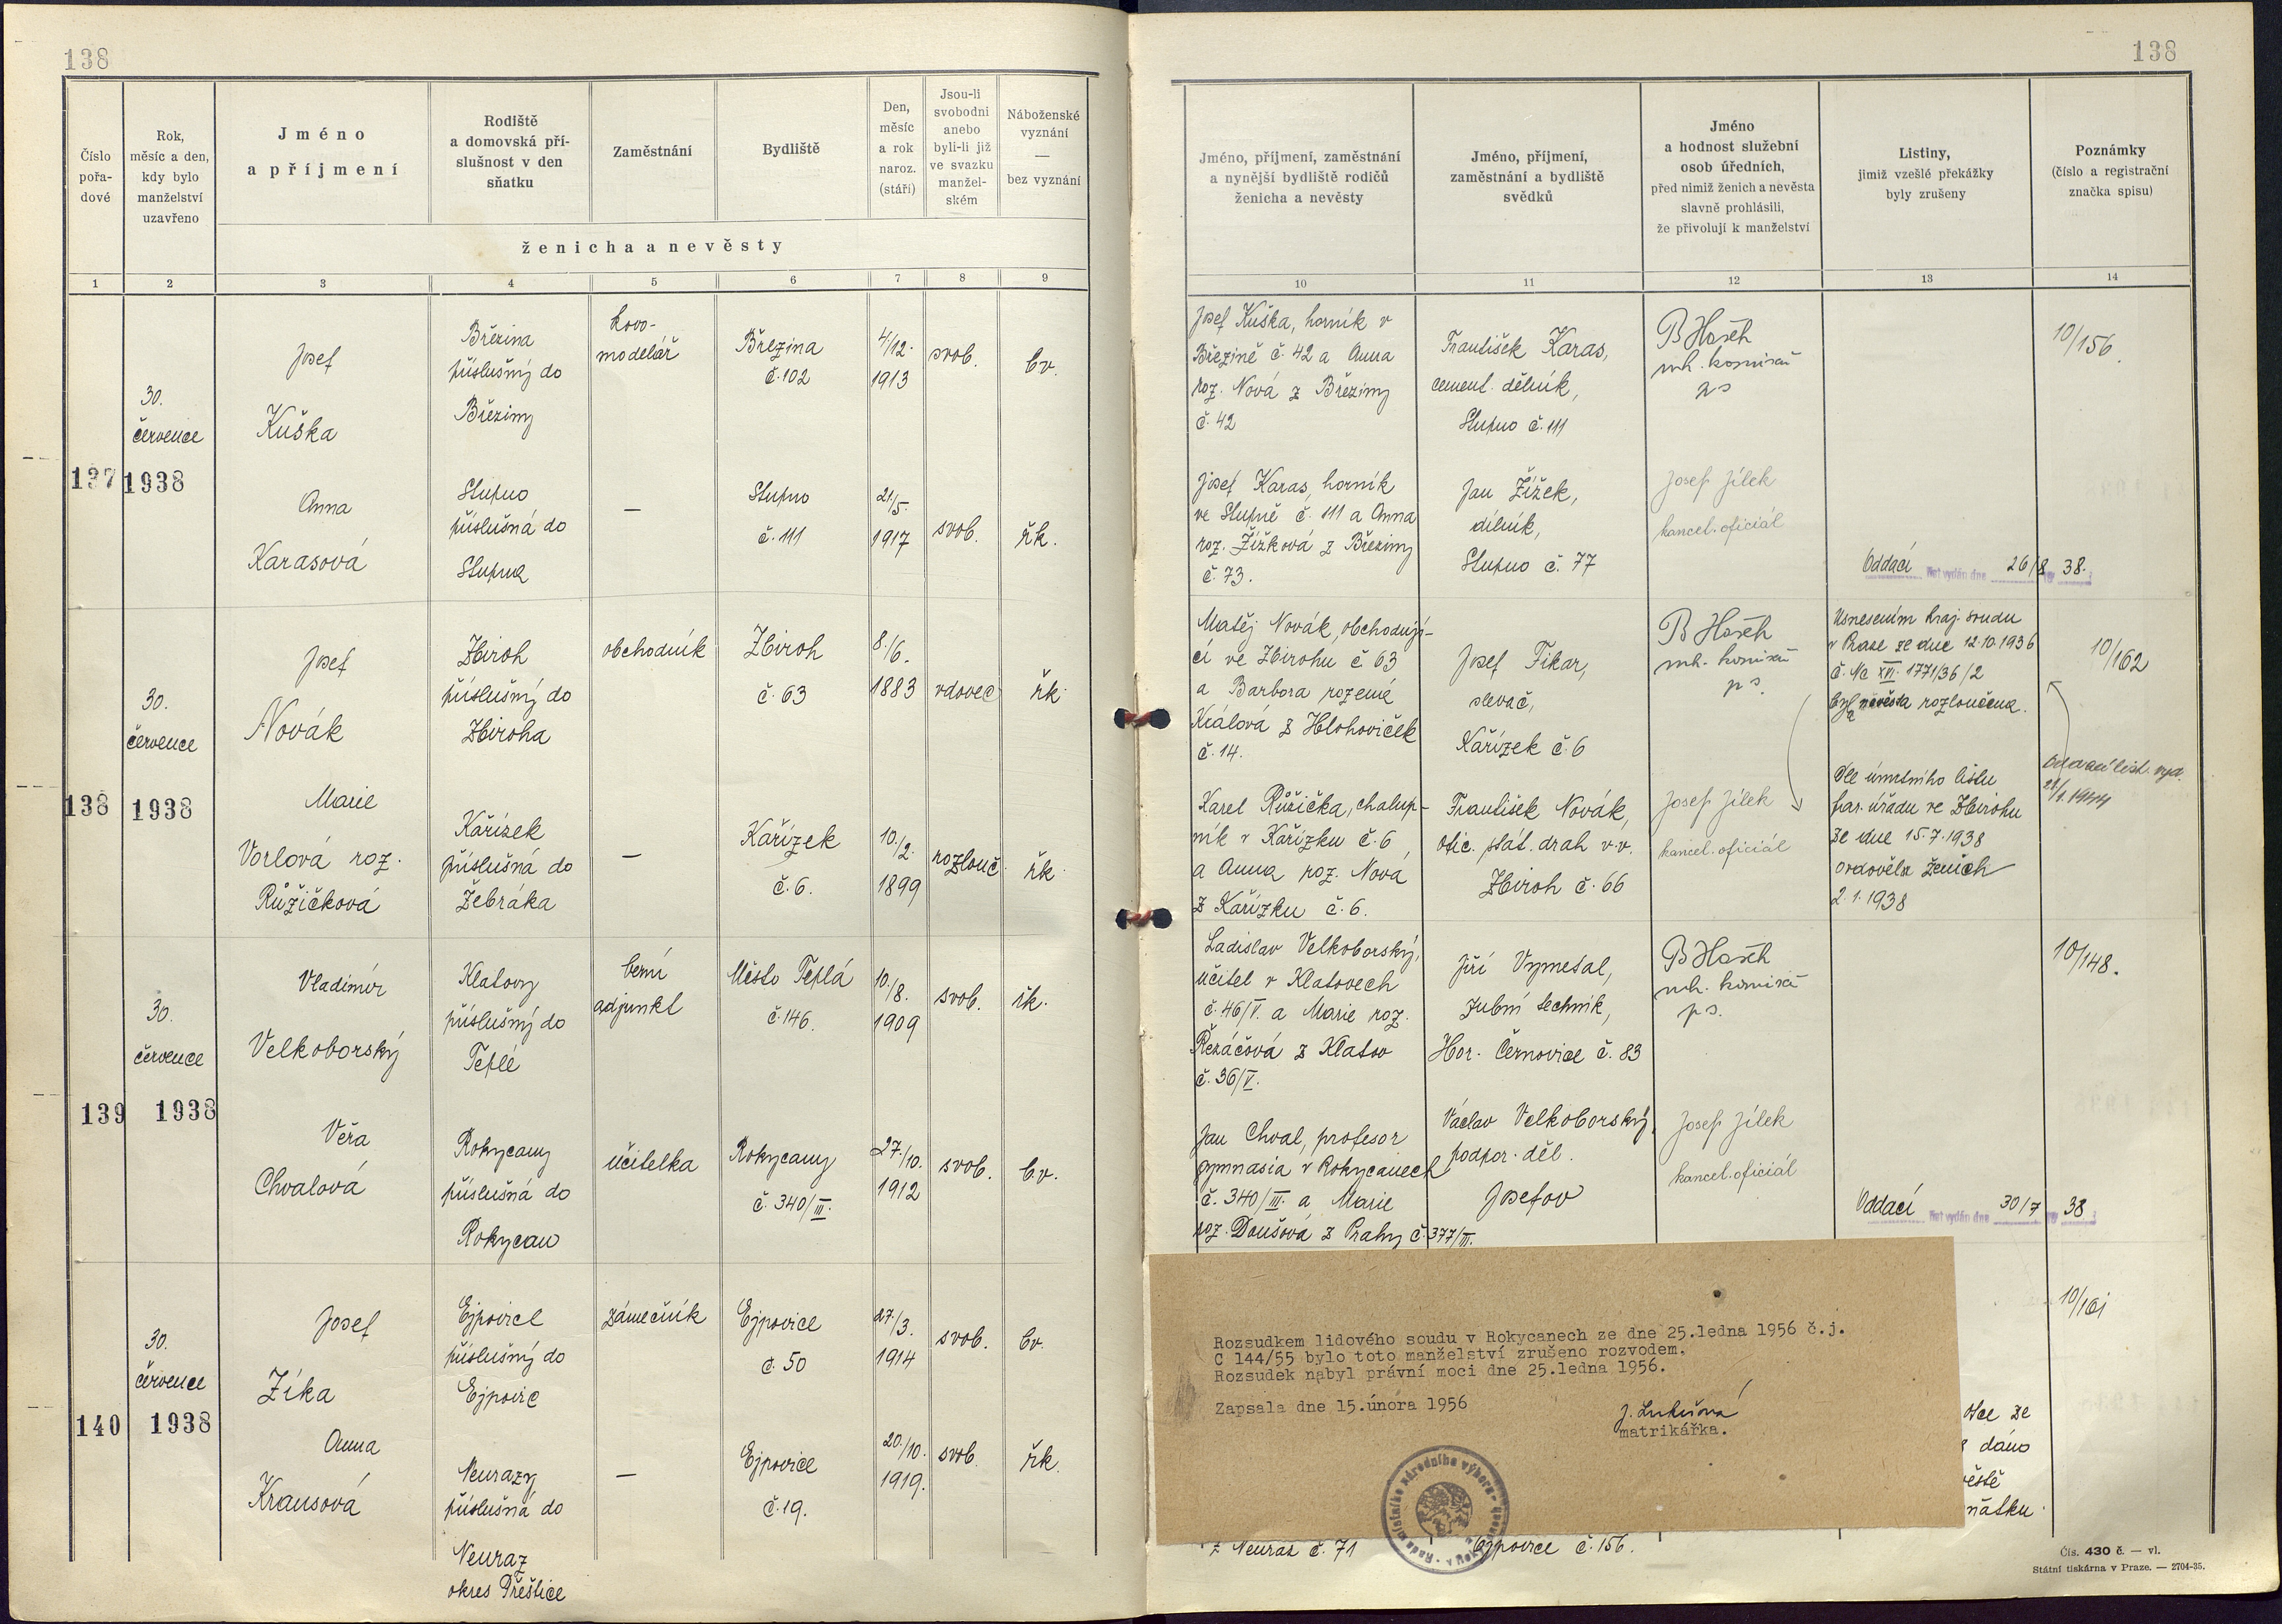 138
138
Číslo
pořa-
dové
Rok,
měsíc a den,
kdy bylo
manželství
uzavřeno
Jméno
a příjmení
Rodiště
a domovská pří-
slušnost v den
sňatku
Zaměstnání
Bydliště
Den,
měsíc
a rok
naroz.
(stáří)
Jsou-li
svobodni
anebo
byli-li již
ve svazku
manžel-
ském
Náboženské
vyznání
—
bez vyznání
ženicha a nevěsty
Jméno, příjmení, zaměstnání
a nynější bydliště rodičů
ženicha a nevěsty
Jméno, příjmení,
zaměstnání a bydliště
svědků
Jméno
a hodnost služební
osob úředních,
před nimiž ženich a nevěsta
slavně prohlásili,
že přivolují k manželství
Listiny,
jimiž vzešlé překážky
byly zrušeny
Poznámky
(číslo a registrační
značka spisu)
1 2 3 4 5 6 7 8 9 10 11 12 13 14
137
30.
července
1938
Josef
Kuška
Březina
příslušný do
Březiny
kovo-
modelář
Březina
č. 102
4/12.
1913
svob.
bv.
Josef Kuška, horník v
Březině č. 42 a Anna
roz. Nová z Březiny
č. 42
František Karas,
cement. dělník,
Stupno č. 111
10/156
Anna
Karasová
Stupno
příslušná do
Stupna
—
Stupno
č. 111
21/5.
1917
svob.
řk.
Josef Karas, horník
ve Stupně č. 111 a Anna
roz. Žížková z Březiny
č. 73.
Jan Žížek,
dělník,
Stupno č. 77
Josef Jílek
kancel. oficiál
Oddací list vydán dne 26/8 38.
138
30.
července
1938
Josef
Novák
Zbiroh
příslušný do
Zbiroha
obchodník
Zbiroh
č. 63
8./6.
1883
vdovec
řk.
Matěj Novák, obchodují-
cí ve Zbirohu č 63
a Barbora rozená
Králová z Hlohoviček
č. 14.
Josef Fikar,
slevač,
Kařízek č. 6
Usnesením kraj. soudu
v Praze ze dne 12.10.1936
č. Nc XVI. 1771/36/2
byla nevěsta rozloučena.
10/162
Marie
Vorlová roz.
Růžičková
Kařízek
příslušná do
Žebráka
—
Kařízek
č. 6.
10./2.
1899
rozlouč.
řk.
Karel Růžička, chalup-
ník v Kařízku č. 6
a Anna roz. Nová
z Kařízku č. 6.
František Novák,
ofic. stát. drah v.v.
Zbiroh č. 66
Josef Jílek
kancel. oficiál
Dle úmrtního listu
far. úřadu ve Zbirohu
ze dne 15.7.1938
ovdověl ženich
2.1.1938
Oddací list vyd.
1944
139
30.
července
1938
Vladimír
Velkoborský
Klatovy
příslušný do
Teplé
berní
adjunkt
Město Teplá
č. 146.
10./8.
1909
svob.
řk.
Ladislav Velkoborský,
učitel v Klatovech
č. 46/V. a Marie roz.
Řezáčová z Klatov
č. 36/V.
Jiří Vymetal,
zubní technik,
Hor. Černovice č. 83
10/148.
Věra
Chvalová
Rokycany
příslušná do
Rokycan
učitelka
Rokycany
č. 340/III.
27./10.
1912
svob.
b.v.
Jan Chval, profesor
gymnasia v Rokycanech
č. 340/III. a Marie
roz. Doušová z Prahy č. 377/III.
Václav Velkoborský,
podpor. děl.
Josefov
Josef Jílek
kancel. oficiál
Oddací list vydán dne 30/7 38
140
30.
července
1938
Josef
Zíka
Ejpovice
příslušný do
Ejpovic
zámečník
Ejpovice
č. 50
27./3.
1914
svob.
bv.
10/161
Anna
Krausová
Neurazy
příslušná do
Neuraz
okres Přeštice
—
Ejpovice
č. 19.
20./10.
1919.
svob.
řk.
Rozsudkem lidového soudu v Rokycanech ze dne 25.ledna 1956 č.j.
C 144/55 bylo toto manželství zrušeno rozvodem.
Rozsudek nabyl právní moci dne 25.ledna 1956.
Zapsala dne 15.února 1956
matrikářka.
otce ze
dáno
z Neuraz č. 71
Ejpovice č. 156.
Čís. 430 č. — vl.
Státní tiskárna v Praze. — 2704-35.